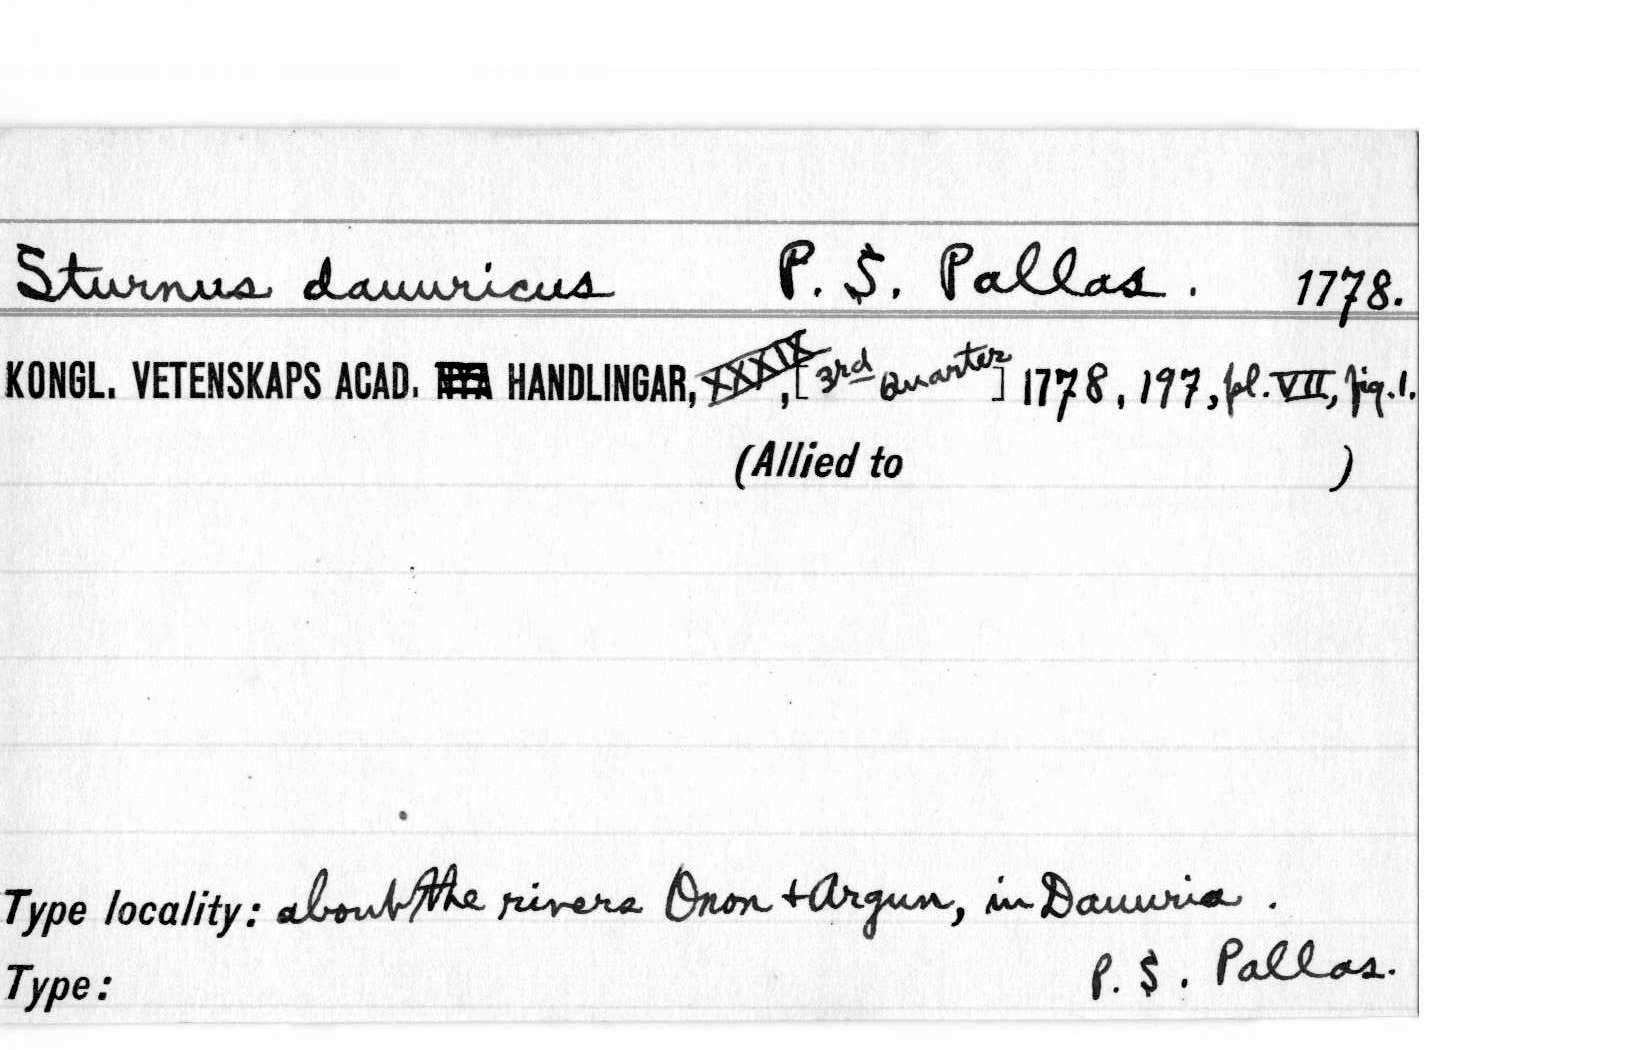 Sturnus dauuricus P. S. Pallas. 1778.
KONGL. VETENSKAPS ACAD. NYA HANDLINGAR, XXXIX, [3rd Quarter] 1778, 197, pl. VII, fig. 1.
(Allied to )
Type locality: about the rivers Onon + Argun, in Dauuria.
Type: P. S. Pallas.